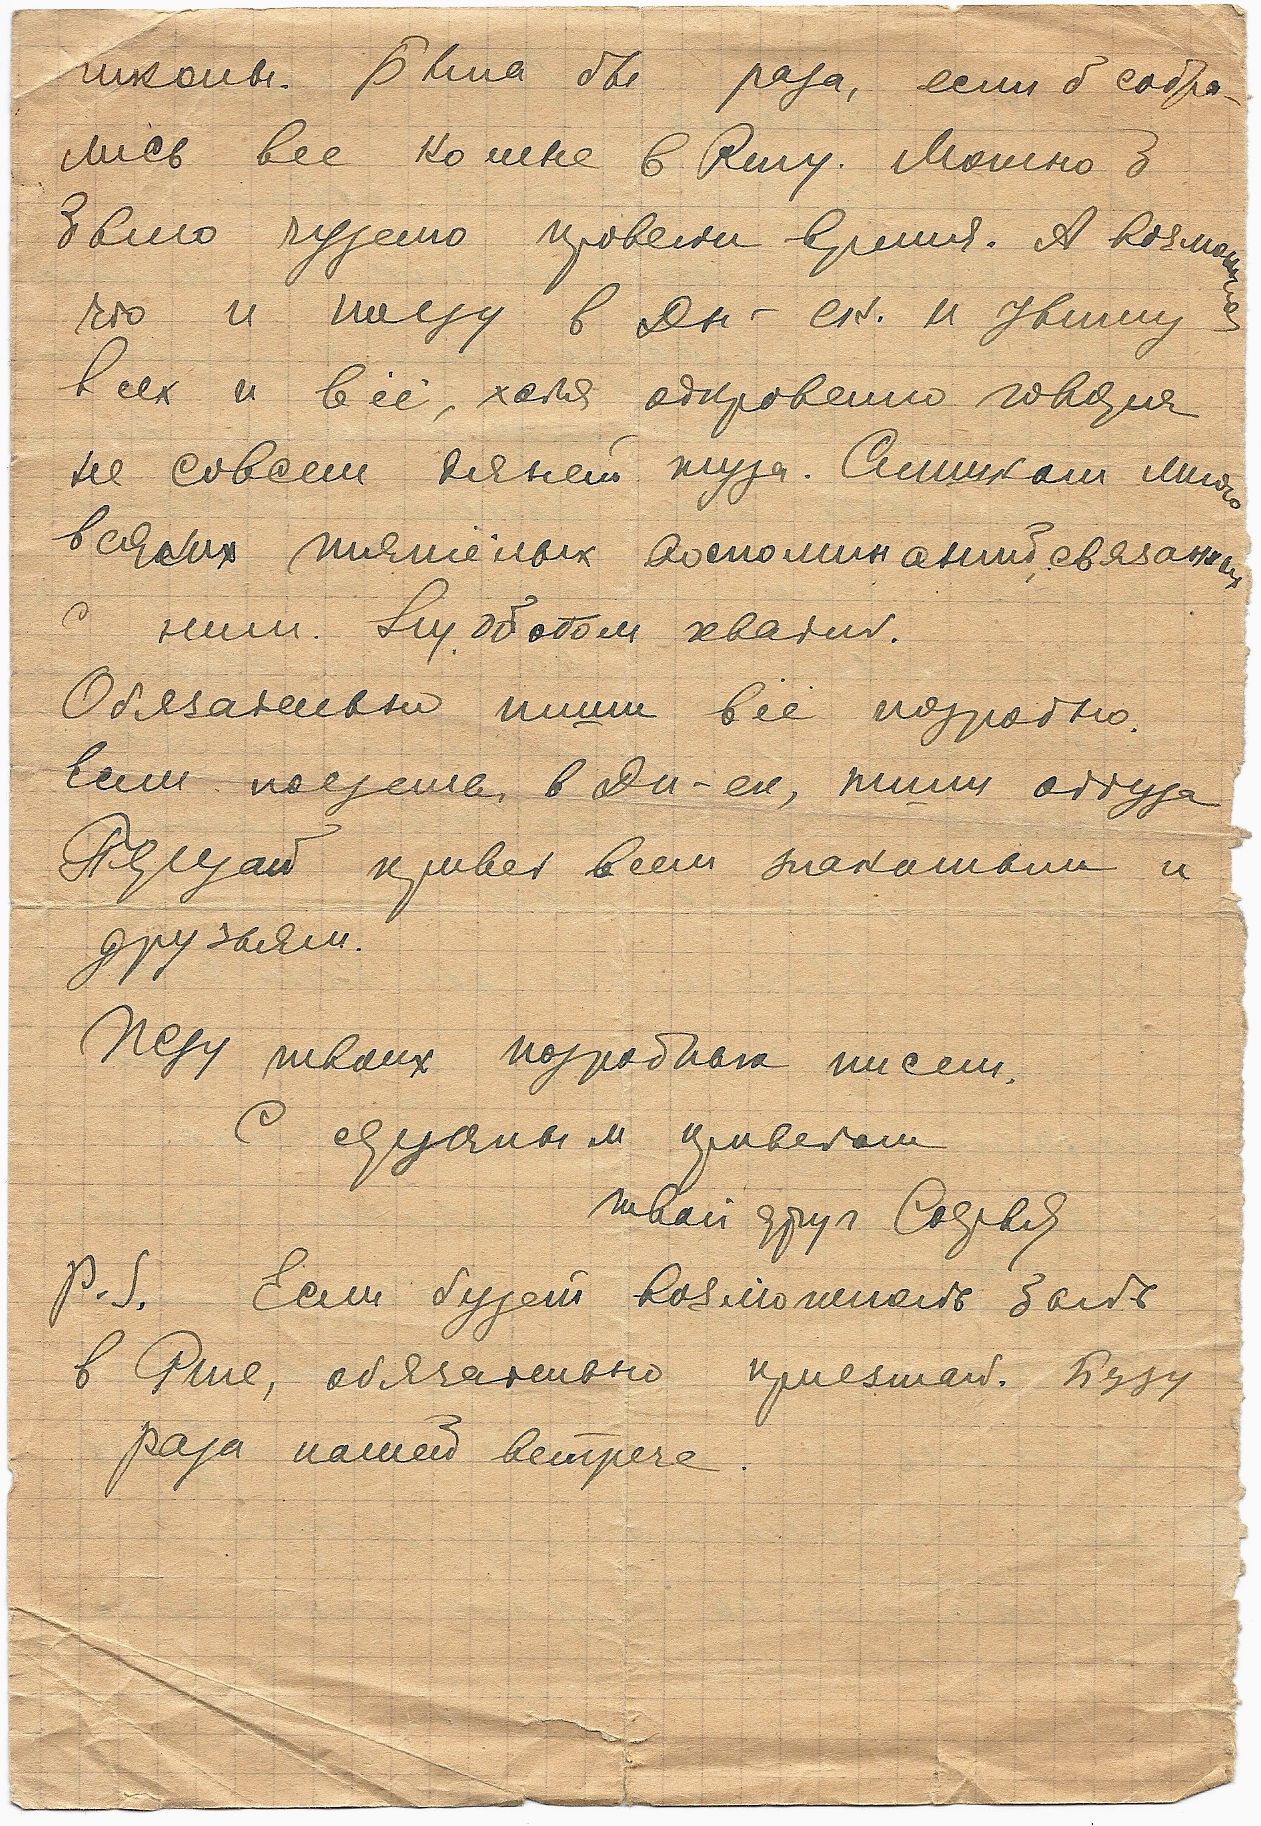 школы. Была бы рада, если б собра-
лись все ко мне в Ригу. Можно б
было чудено провести время. А возможно
что и поеду в Дн-ск. и увижу
всех и всё, хотя откровенно говоря
не совсем тянет туда. Слишком много
всяких тяжёлых воспоминаний, связанных
с ним. Ну, об этом хватит.
Обязательно пиши всё подробно.
Если поедешь в Дн-ск, пиши оттуда
Передай привет всем знакомым и
друзьям.
Жду твоих подробных писем.
С сердечным приветом
твой друг
P.S. Если будет возможность быть
в Риге, обязательно приезжай. Буду
рада нашей встрече.